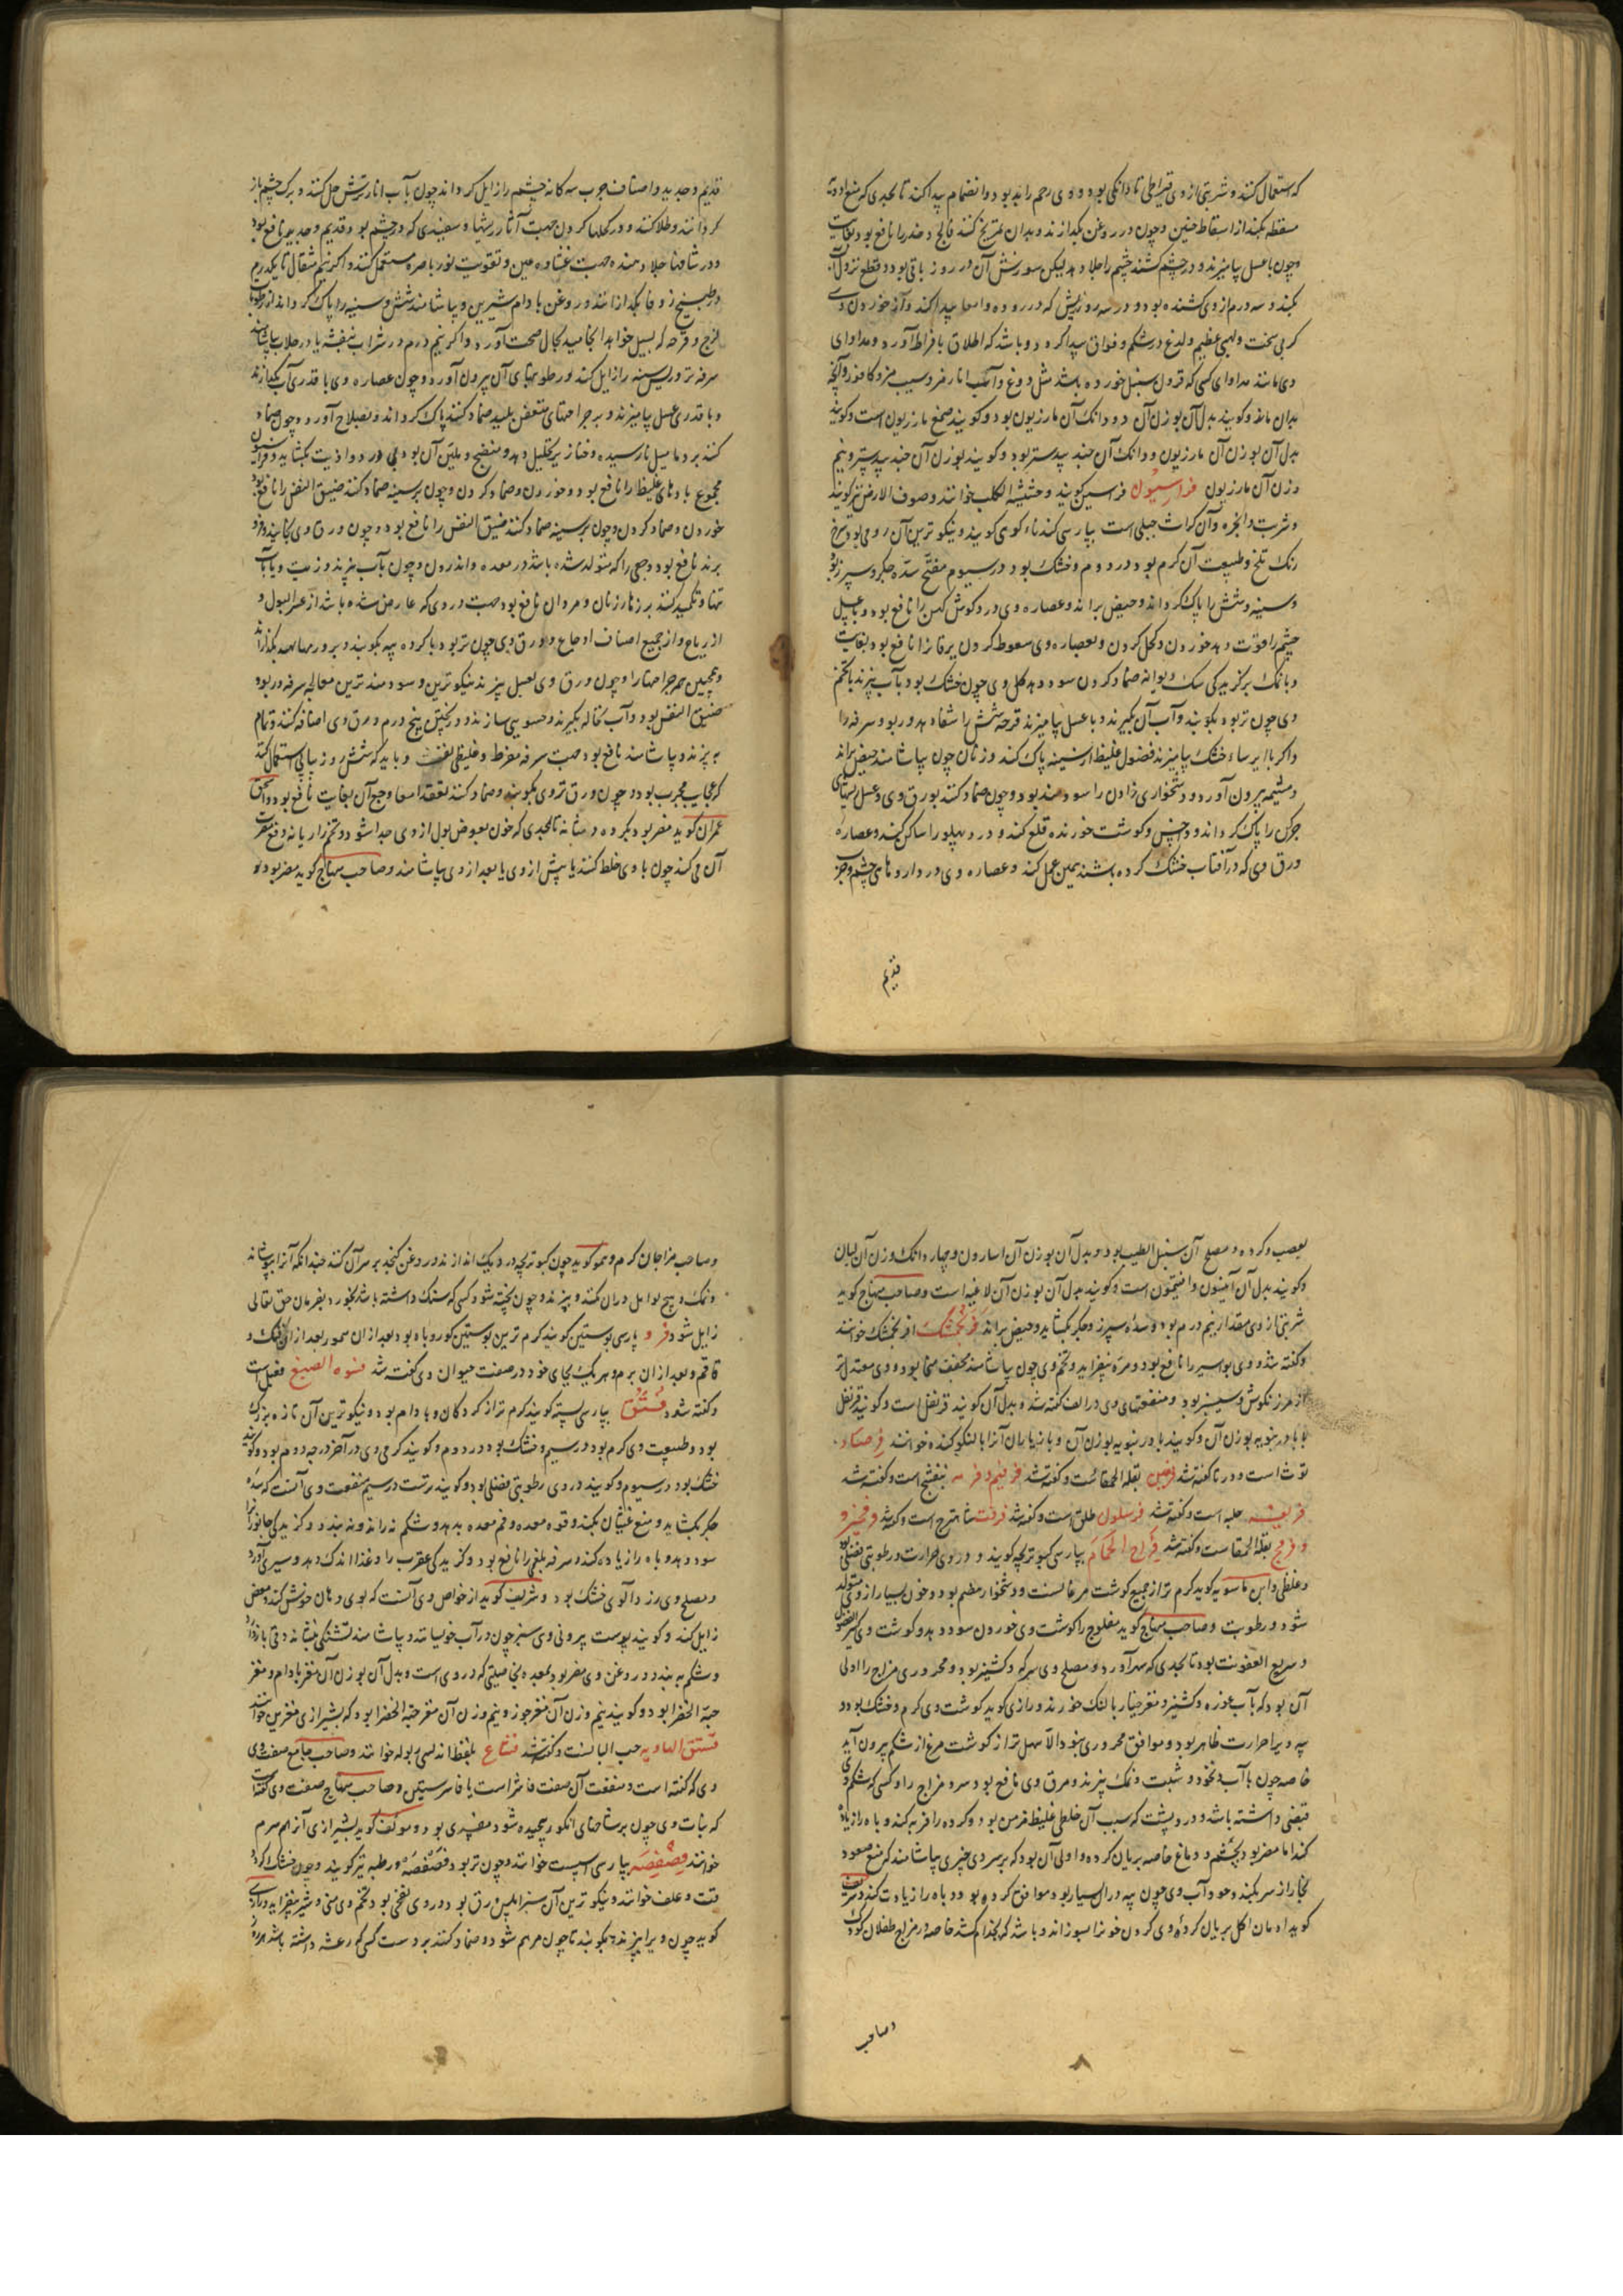 که استعمال کنند و شربتی از وی قیراطی تا دانکی بود و وی رحم را بد بود و انضمام پیدا کند تا بحدی که منع ادویه
مسقطه بکند از اسقاط جنین و چون در روغن بکدازند و بدان تمریخ کنند فالج و خدر را نافع بود بغایت
و چون با عسل بیامیزند و در چشم کشند چشم را جلا دهد لیکن سوزش آن در روز باقی بود و قطع نزول آب
بکند و سه درم از وی کشنده بود و در سه روز ریش که در روده و امعا پیدا کند و از خوردن وی
کربی سخت و لهیبی عظیم و لدغ در شکم و فواق پیدا کرده و باشد که اطلاق بافراط آورد و مداوای
وی مانند مداوای کسی که قرون سنبل خورده باشد مثل دوغ و آب انار مز و سیب مز و کافور و آنچه
بدان ماند و کویند بدل آن بوزن آن دو دانک آن مازریون بود و کویند صمغ مازریون است و کویند
بدل آن بوزن آن مازریون و دانک آن جند بیدستر بود و کویند بوزن آن جند بیدستر و نیم
وزن آن مازریون فراسیون فرسین کویند و حشیشة الکلب خوانند و صوف الارض نیز کویند
و شربت و الخره و آن کراث جبلی است بپارسی کندناء کوهی کویند و نیکو ترین آن رومی بود سرخ
رنک تلخ و طبیعت آن کرم بود در دوم و خشک بود در سیوم مفتح سده جکر و سپرز بود
و سینه و شش را پاک کرداند و حیض براند و عصاره وی درد کوش کهن را نافع بود و با عسل
چشم را قوت دهد خوردن و کحل کردن و بعصاره وی سعوط کردن یرقان را نافع بود بغایت
و با نمک بر کزیدکی سک دیوانه ضماد کردن سود دهد کل وی چون خشک بود بآب بپزند با تخم
وی چون تر بود بکوبند و آب آن بکیرند و با عسل بیامیزند قرحه شش را شفا دهد و ربو و سرفه را
و اکر با ایرساء خشک بیامیزند فضول غلیظ از سینه پاک کند و زنان چون بیاشامند حیض براند
و مشیمه بیرون آورد و دشخواری زادن را سودمند بود و چون ضماد کنند بورق وی و عسل ریشهای
چرکن را پاک کرداند و داحس و کوشت خورنده قلع کند و درد پهلو را ساکن کند و عصاره
ورق وی که در آفتاب خشک کرده باشند همین عمل کند و عصاره وی در داروهای چشم و جرب
قدیم
قدیم و جدید و اصناف جرب سه کانه چشم را زایل کرداند چون بآب انار ترش حل کنند و برک چشم باز
کردانند و طلا کنند و در کحلها کردن جهت آثار ریشها و سفیدی که در چشم بود قدیم و جدید نافع بود
و در شافها جلا دهنده جهت غشاوه عین و تقویت نور باصره مستعمل کنند و اکر نیم مثقال تا یکدرم
در طبیخ زوفا بکدازانند و روغن بادام شیرین و بیاشامند شش و سینه را پاک کرداند از رطوبات
لزج و قرحه که بسیل خواهد انجامید بحال صحت آورد و اکر نیم درم در شراب بنفشه یا در جلاب بیاشامند
سرفه تر و ریش سینه را زایل کند و رطوبتهای آن بیرون آورد و چون عصاره وی با قدری آب بکدازند
و با قدری عسل بیامیزند و بر جراحتهای متعفن پلید ضماد کنند پاک کرداند و بصلاح آورد و چون ضماد
کنند بر دمامیل نارسیده و خنازیر تحلیل دهد و منضج و ملین آن بود
مجموع بادهای غلیظ را نافع بود و خوردن و ضماد کردن و چون بر سینه ضماد کنند ضیق النفس را نافع بود
خوردن و ضماد کردن و چون بر سینه ضماد کنند ضیق النفس را نافع بود و چون ورق وی بخایند و فرو
برند نافع بود وجعی را که متولد شده باشد در معده و اندرون و چون بآب بپزند و زیت و بآب
تنها و تکمید کنند بر زهار زنان و مردان نافع بود جهت دردی که عارض شده باشد از عسر البول و
از ریاح و از جمیع اصناف اوجاع و ورق وی چون تر بود با کرده پیه بکوبند و بر ورمها نهند بکدازاند
و همچنین همه جراحتها را و چون ورق وی بعسل بپزند نیکو ترین و سودمند ترین معالجه سرفه و ربو و
ضیق النفس بود و آب نخاله بکیرند و حسویی سازند و در پختن پنج درم ورق وی اضافه کنند و تمام
بپزند و بیاشامند نافع بود جهت سرفه مفرط و غلیظی نفث و باید که شش روز پیاپی استعمال کنند
که عجایب مجرب بود و چون ورق تر وی بکوبند و ضماد کنند تعقد امعا و وجع آن بغایت نافع بود و اسحق
عمران کوید مضر بود بکرده و مثانه تا بحدی که خون بعوض بول از وی جدا شود و تخم رازیانه دفع مضرت
آن می کند چون با وی خلط کنند یا پیش از وی یا بعد از وی بیاشامند و صاحب منهاج کوید مضر بود
بعصب و کرده و مصلح آن سنبل الطیب بود و بدل آن بوزن آن اسارون و چهار دانک وزن آن لبان
و کویند بدل آن افیتمون است و کویند بدل آن بوزن آن لاغیه است و صاحب منهاج کوید
شربتی از وی مقدار نیم درم بود و سده سپرز و جکر بکشاید و حیض براند فرنجمشک افرنجمشک خوانند
و کفته شد و وی بواسیر را نافع بود و مره بیفزاید و تخم وی چون بیاشامند مجفف منی بود و وی معتدل تر
از مرزنکوش و سیسنبر بود و منفعتهای وی در الف کفته شد و بدل آن کویند قرنفل است و کویند قرنفل
با بادرنجبویه بوزن آن و کویند بادرنبویه بوزن آن و بازیاران آنرا بالنکو کنده خوانند فرصاد
توث است و در تا کفته شد فرفین بقله الحمقاست و کفته شد فرفیر و فرفیه بنفشج است و کفته شد
فریقه حلبه است و کفته شد فرسلون طلق است و کفته شد فرفت شاهترج است و کفته شد و فرفخیر و
و فرفح بقلة الحمقاست و کفته شد فراخ الحمام بپارسی کبوتر بچه کویند و در وی حرارت و رطوبتی فضلی بود
و غلظی و ابن ماسویه کوید کرم تر از جمیع کوشت مرغانست و دشخوار هضم بود و خون بسیار از وی متولد
شود و رطوبت و صاحب منهاج کوید مفلوج را کوشت وی خوردن سود دهد و کوشت وی کثیر الفضول
و سریع العفونت بود تا بحدی که سهر آورد و مصلح وی سرکه و کشنیز بود و محروری مزاج را اولی
آن بود که بآب غوره و کشنیز و مغز خیار بالنک خورند و رازی کوید کوشت وی کرم و خشک بود و
پیه ویرا حرارت ظاهر بود و موافق محروری نبود الا سهل تر از کوشت مرغ از شکم بیرون آید
خاصه چون با آب و نخود و شبت و نمک بپزند و مرق وی نافع بود سرد مزاج را و کسی که شکم وی
قبضی داشته باشد و درد پشت که سبب آن خلطی غلیظ مزمن بود و کرده را فربه کند و باه را زیاده
کند اما مضر بود بچشم و دماغ خاصه بریان کرده و اولی آن بود که بر سر وی چیزی بیاشامند که منع صعود
بخار از سر بکند و حود آب وی چون پیه در آن بسیار بود موافق کرده بود و باه را زیادت کند و شریف
کوید ادمان اکل بریان کرده وی کردن خونرا بسوزاند و باشد که بجذام کشد خاصه در مزاج طفلان کوچک
و صاحب
و صاحب مزاجان کرم و هم کوید چون کبوتر بچه در دیک اندازند و روغن کنجد بر سر آن کنند چندانکه آنرا بپوشاند
و نمک و هیچ توابل در آن نکنند و بپزند و چون پخته شود کسی که سنک داشته باشد بخورد بفرمان حق تعالی
زایل شود فرو پارسی پوستین کویند کرم ترین پوستین کور روباه بود بعد از آن سمور بعد از آن فنک و
قاقم و بعد از آن بره و هر یک بجای خود در صفت حیوان وی کفته شد فسوه الضبع فقبل است
و کفته شد فستق بپارسی پسته کویند کرم تر از کردکان و بادام بود و نیکو ترین آن تازه بزرک
بود و طبیعت وی کرم بود در سیم و خشک بود در دوم و کویند کرمی وی در آخر درجه دوم بود و کویند
خشک بود در سیوم و کویند در وی رطوبتی فضلی بود و کویند ترست در سیم منفعت وی آنست که سده
جکر بکشاید و منع غثیان بکند و قوه معده و فم معده بدهد و شکم نه براند و نه ببندد و کزیدکی جانورانرا
سود دهد و باه را زیاده کند و سرفه بلغمی را نافع بود و کزیدکی عقرب را و غذا اندک دهد و سیری آورد
و مصلح وی زردآلوی خشک بود و شریف کوید از خواص وی آنست که بوی دهان خوش کند و مغص
زایل کند و کویند پوست بیرونی وی سبز چون در آب خیسانند و بیاشامند تشنکی بنشاند و قی باز دارد
و شکم ببندد و روغن وی مضر بود بمعده بخاصیتی که در وی است و بدل آن بوزن آن مغز بادام و مغز
حبة الخضرا بود و کویند نیم وزن آن مغز جوز و نیم وزن آن مغز حبة الخضرا بود که بشیرازی مغز بن خوانند
فستق الهاویه حب البا لست و کفته شد فشاع بلفظ اندلسی بوله خوانند و صاحب جامع صفت وی
وی که کفته است و منفعت آن صفت فاشرا است یا فاشرستین و صاحب منهاج صفت وی کفته است
که نبات وی چون بر شاخهای انکور پیچیده شود مفسدی بود و مولف کوید بشیرازی آنرا هم سرم
خوانند فصفصه بپارسی اسپست خوانند و چون تر بود فصفصه و رطبه نیز کویند و چون خشک کردد
قت و علف خوانند و نیکو ترین آن سبز املس ورق بود و در وی نفخی بود و تخم وی منی و شیر بیفزاید و رازی
کوید چون ویرا بپزند و بکوبند تا چون مرهم شود و ضماد کنند بر دست کسی که رعشه داشته باشد هر روز